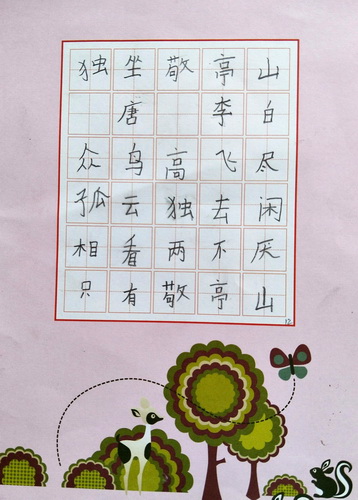 独坐敬亭山
唐 李白
众鸟高飞尽
孤云独去闲
相看两不厌
只有敬亭山
12